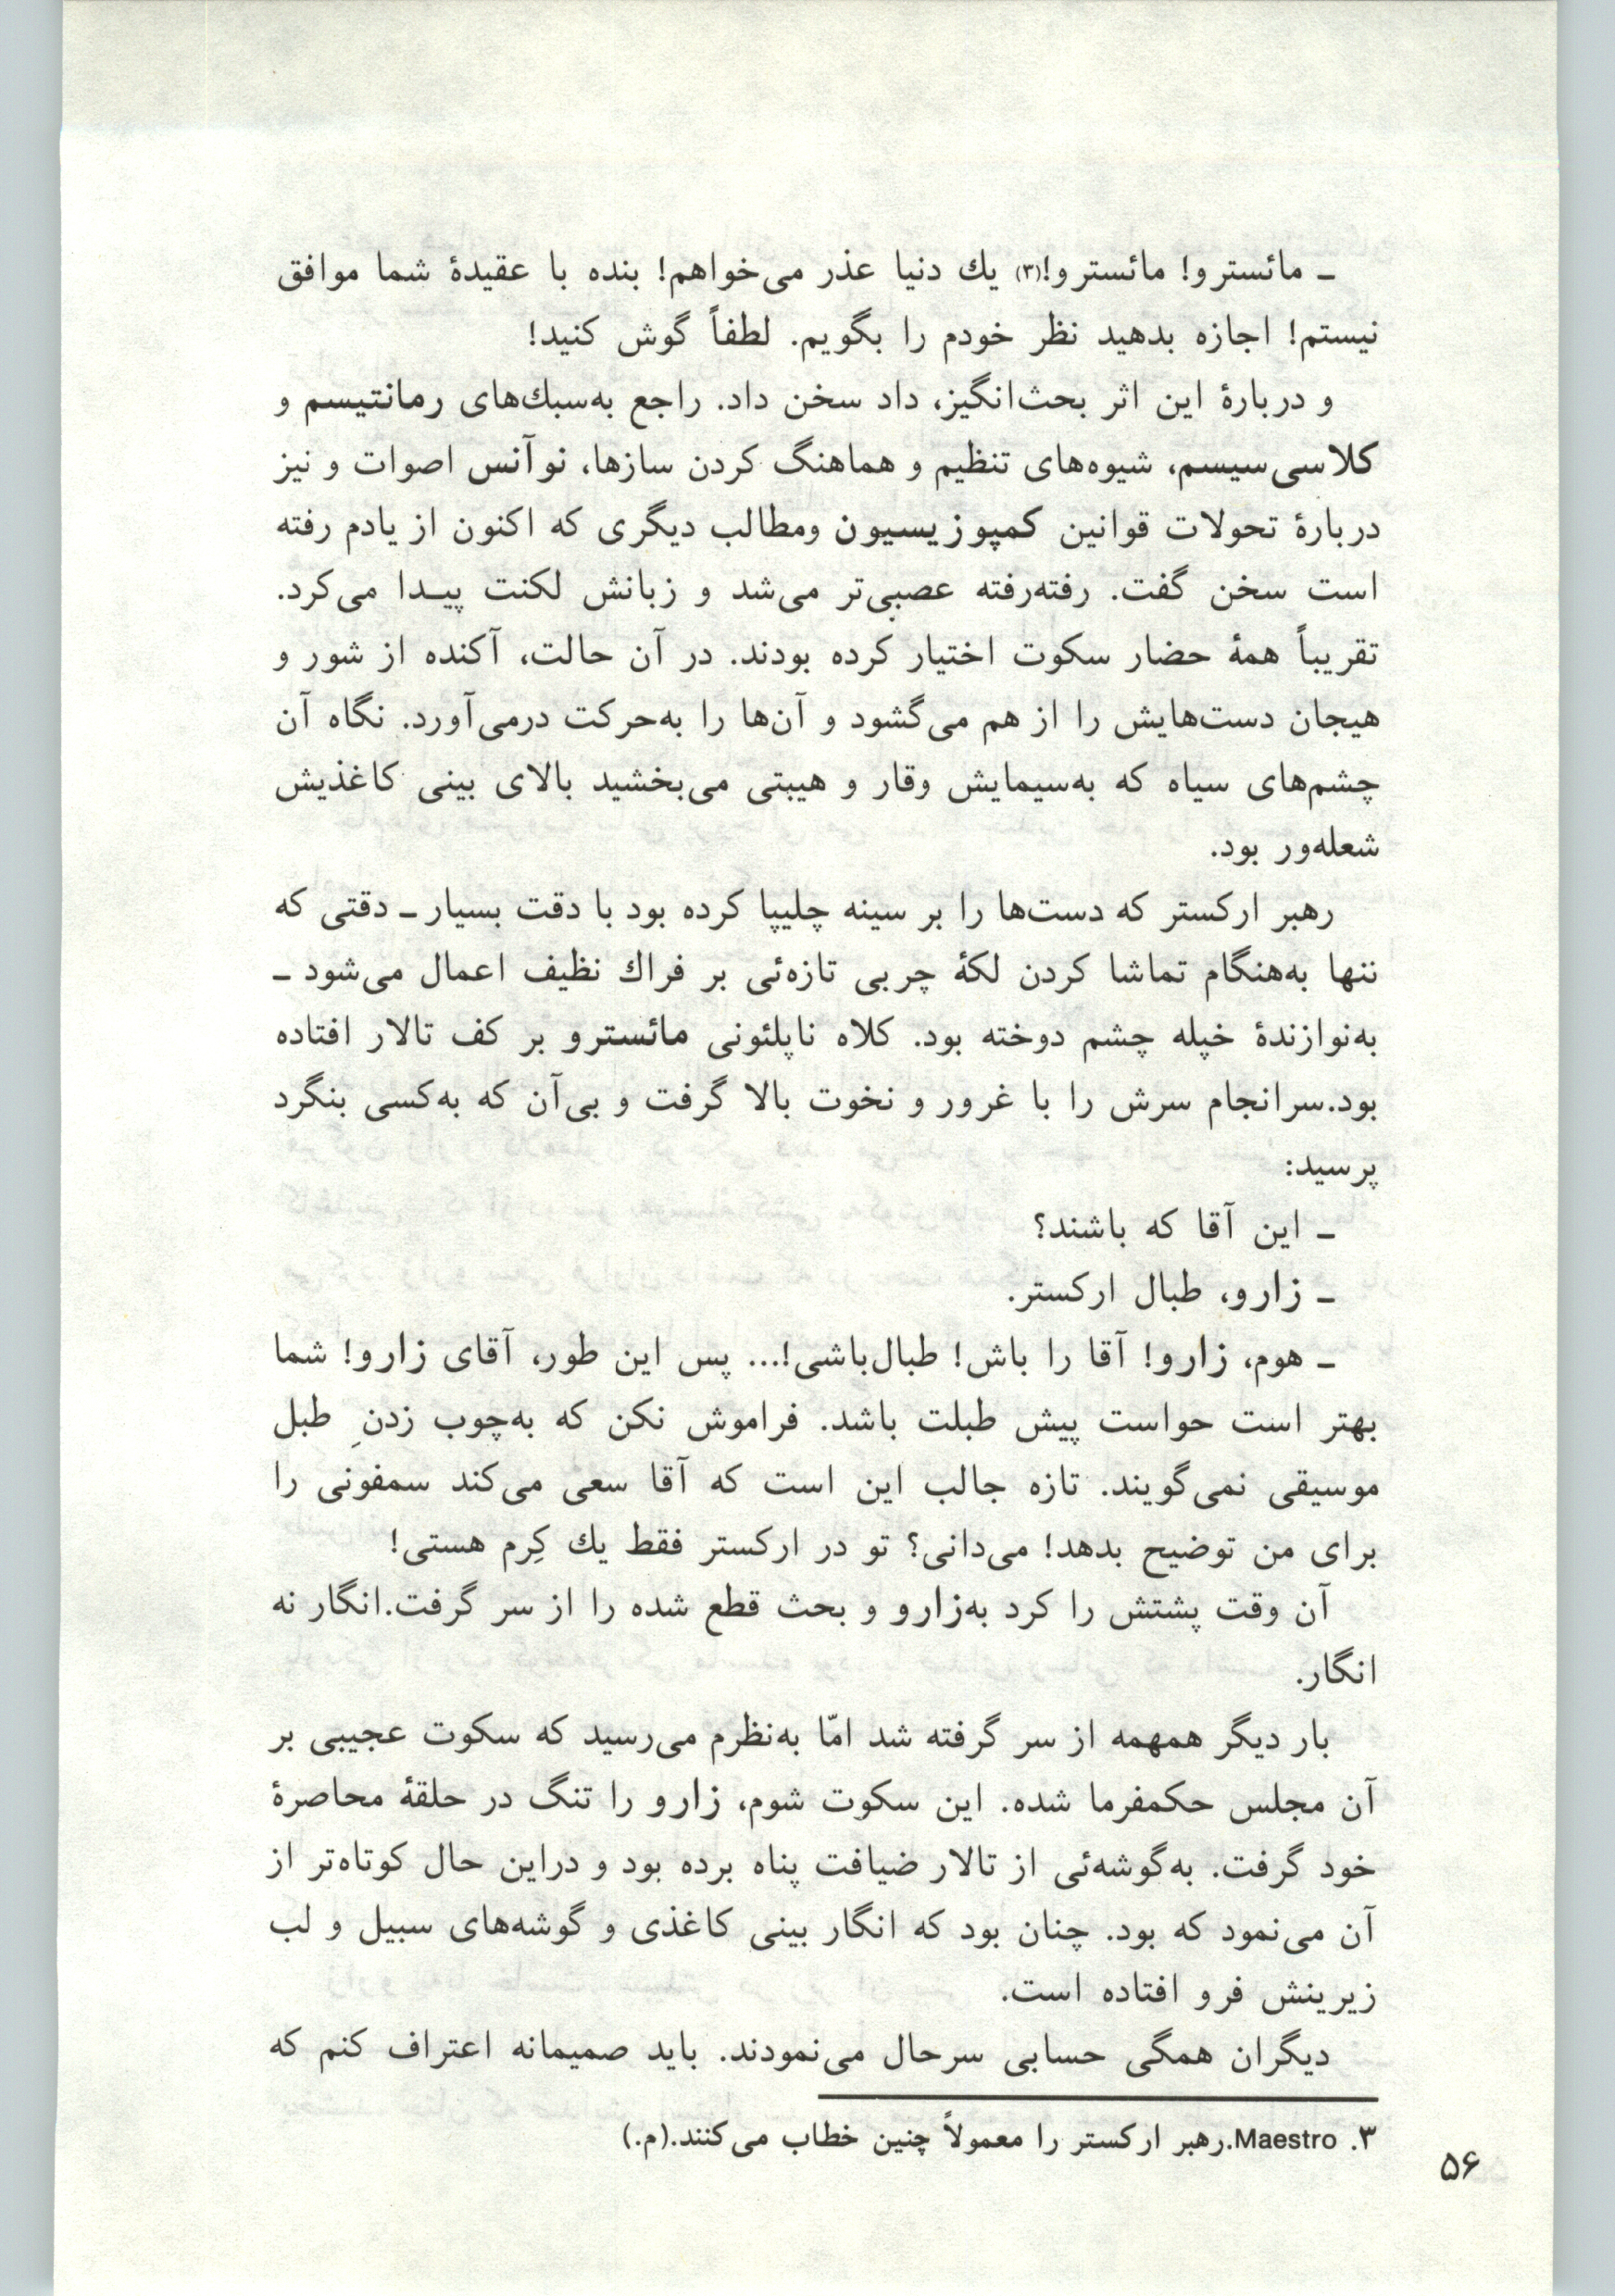 ـ مائسترو! مائسترو!(۳) يك دنيا عذر می‌خواهم! بنده با عقيدهٔ شما موافق
نيستم! اجازه بدهيد نظر خودم را بگويم. لطفاً گوش كنيد!
و دربارهٔ اين اثر بحث‌انگيز، داد سخن داد. راجع به‌سبك‌های رمانتيسم و
كلاسی‌سيسم، شيوه‌های تنظيم و هماهنگ كردن سازها، نوآنس اصوات و نيز
دربارهٔ تحولات قوانين كمپوزيسيون ومطالب ديگری كه اكنون از يادم رفته
است سخن گفت. رفته‌رفته عصبی‌تر می‌شد و زبانش لكنت پيـدا می‌كرد.
تقريباً همهٔ حضار سكوت اختيار كرده بودند. در آن حالت، آكنده از شور و
هيجان دست‌هايش را از هم می‌گشود و آن‌ها را به‌حركت درمی‌آورد. نگاه آن
چشم‌های سياه كه به‌سيمايش وقار و هيبتی می‌بخشيد بالای بينی كاغذيش
شعله‌ور بود.
رهبر اركستر كه دست‌ها را بر سينه چليپا كرده بود با دقت بسيار ـ دقتی كه
تنها به‌هنگام تماشا كردن لكهٔ چربی تازه‌ئی بر فراك نظيف اعمال می‌شود ـ
به‌نوازندهٔ خپله چشم دوخته بود. كلاه ناپلئونی مائسترو بر كف تالار افتاده
بود.سرانجام سرش را با غرور و نخوت بالا گرفت و بی‌آن كه به‌كسی بنگرد
پرسيد:
ـ اين آقا كه باشند؟
ـ زارو، طبال اركستر.
ـ هوم، زارو! آقا را باش! طبال‌باشی!... پس اين طور، آقای زارو! شما
بهتر است حواست پيش طبلت باشد. فراموش نكن كه به‌چوب زدنِ طبل
موسيقی نمی‌گويند. تازه جالب اين است كه آقا سعی می‌كند سمفونی را
برای من توضيح بدهد! می‌دانی؟ تو در اركستر فقط يك كِرم هستی!
آن وقت پشتش را كرد به‌زارو و بحث قطع شده را از سر گرفت.انگار نه
انگار.
بار ديگر همهمه از سر گرفته شد امّا به‌نظرم می‌رسيد كه سكوت عجيبی بر
آن مجلس حكمفرما شده. اين سكوت شوم، زارو را تنگ در حلقهٔ محاصرهٔ
خود گرفت. به‌گوشه‌ئی از تالار ضيافت پناه برده بود و دراين حال كوتاه‌تر از
آن می‌نمود كه بود. چنان بود كه انگار بينی كاغذی و گوشه‌های سبيل و لب
زيرينش فرو افتاده است.
ديگران همگی حسابی سرحال می‌نمودند. بايد صميمانه اعتراف كنم كه
۳. Maestro.رهبر اركستر را معمولاً چنين خطاب می‌كنند.(م.)
۵۶